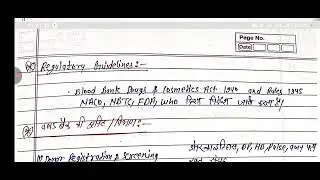 Page No.
Date
Regulatory Guidelines :-
• Blood Bank Drugs & Cosmetics Act 1940 and Rules 1945
NACO, NBTC, FDA, WHO दिशा निर्देश जारी करता है।
ब्लड बैंक की /विभाग:-
Donor Registration & Screening
BP, HB, Pulse, वजन